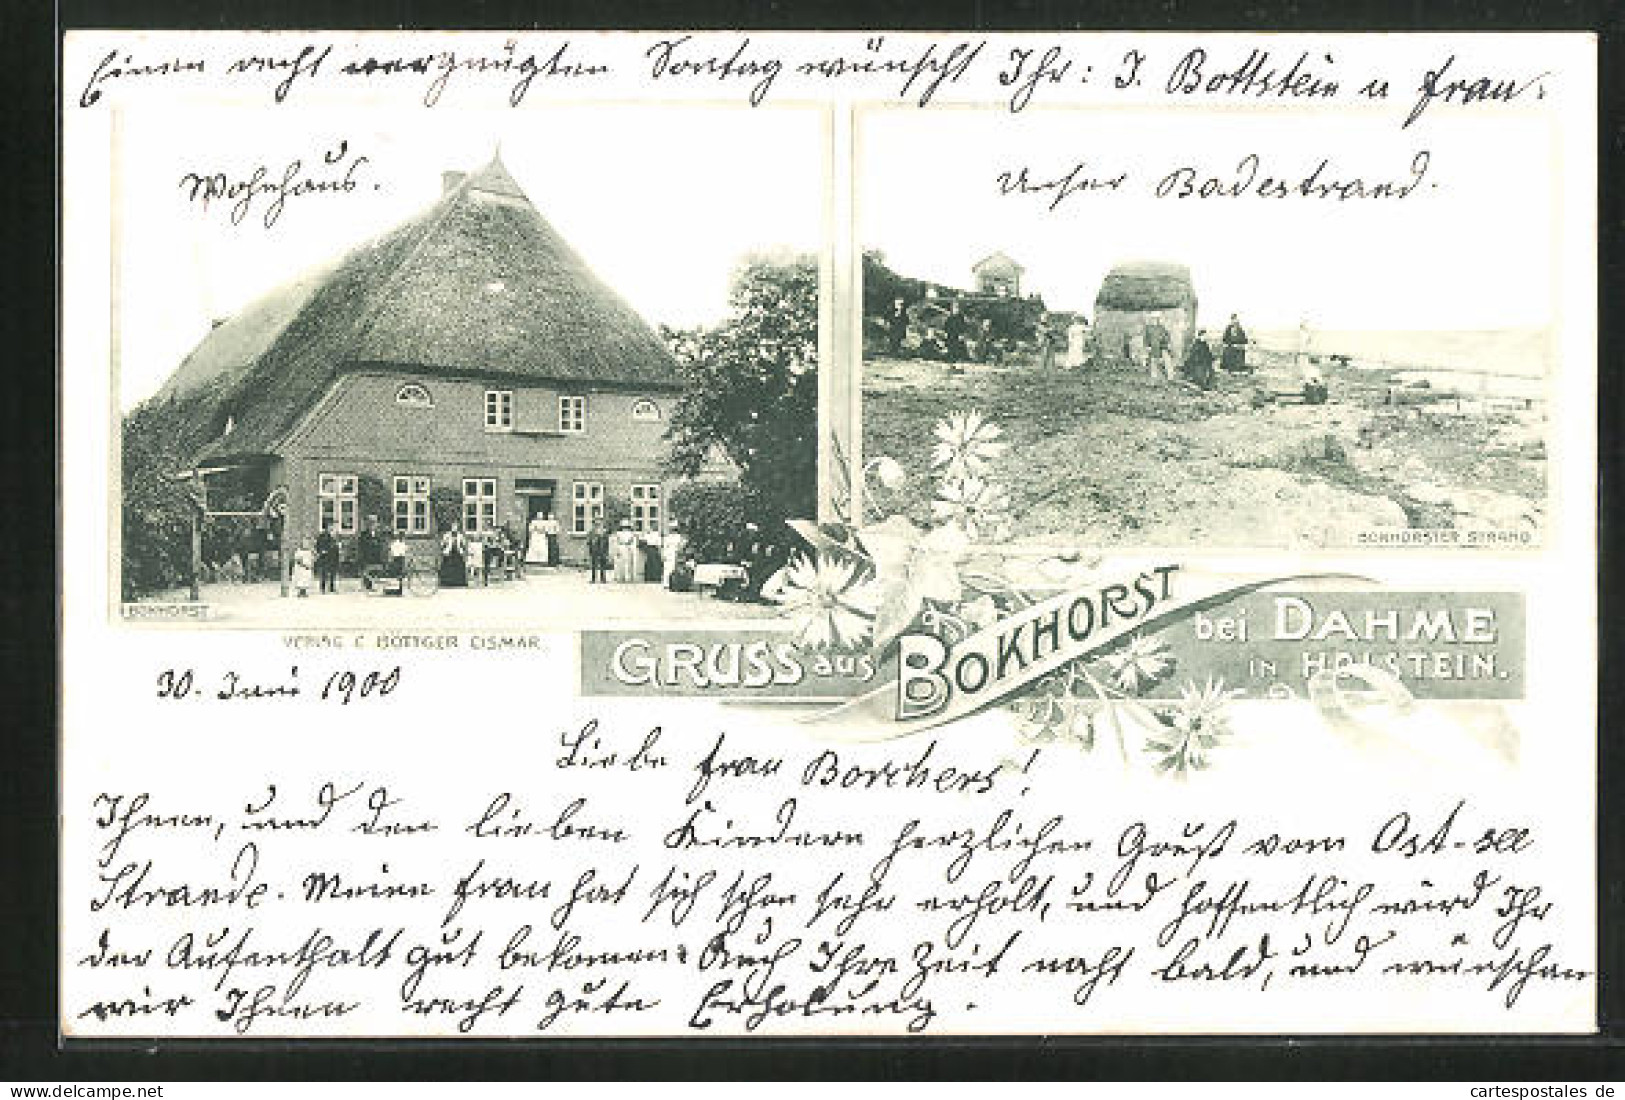 Einen recht vergnügten Sontag wünscht Ihr: J. Bottstein u Frau.
Wohnhaus.
Unser Badestrand.
BOKHORST
BOKHORSTER STRAND
VERLAG C. BÖTTGER CISMAR.
GRUSS aus BOKHORST bei DAHME
IN HOLSTEIN.
30. Juni 1900
Liebe Frau Borchers!
Ihnen, und den lieben Kindern herzlichen Gruß vom Ost-see
Strande. Meine Frau hat sich schon sehr erholt, und hoffentlich wird Ihr
der Aufenthalt gut bekommen. Auch Ihre Zeit naht bald, und wünschen
wir Ihnen recht gute Erholung.
cartespostales de